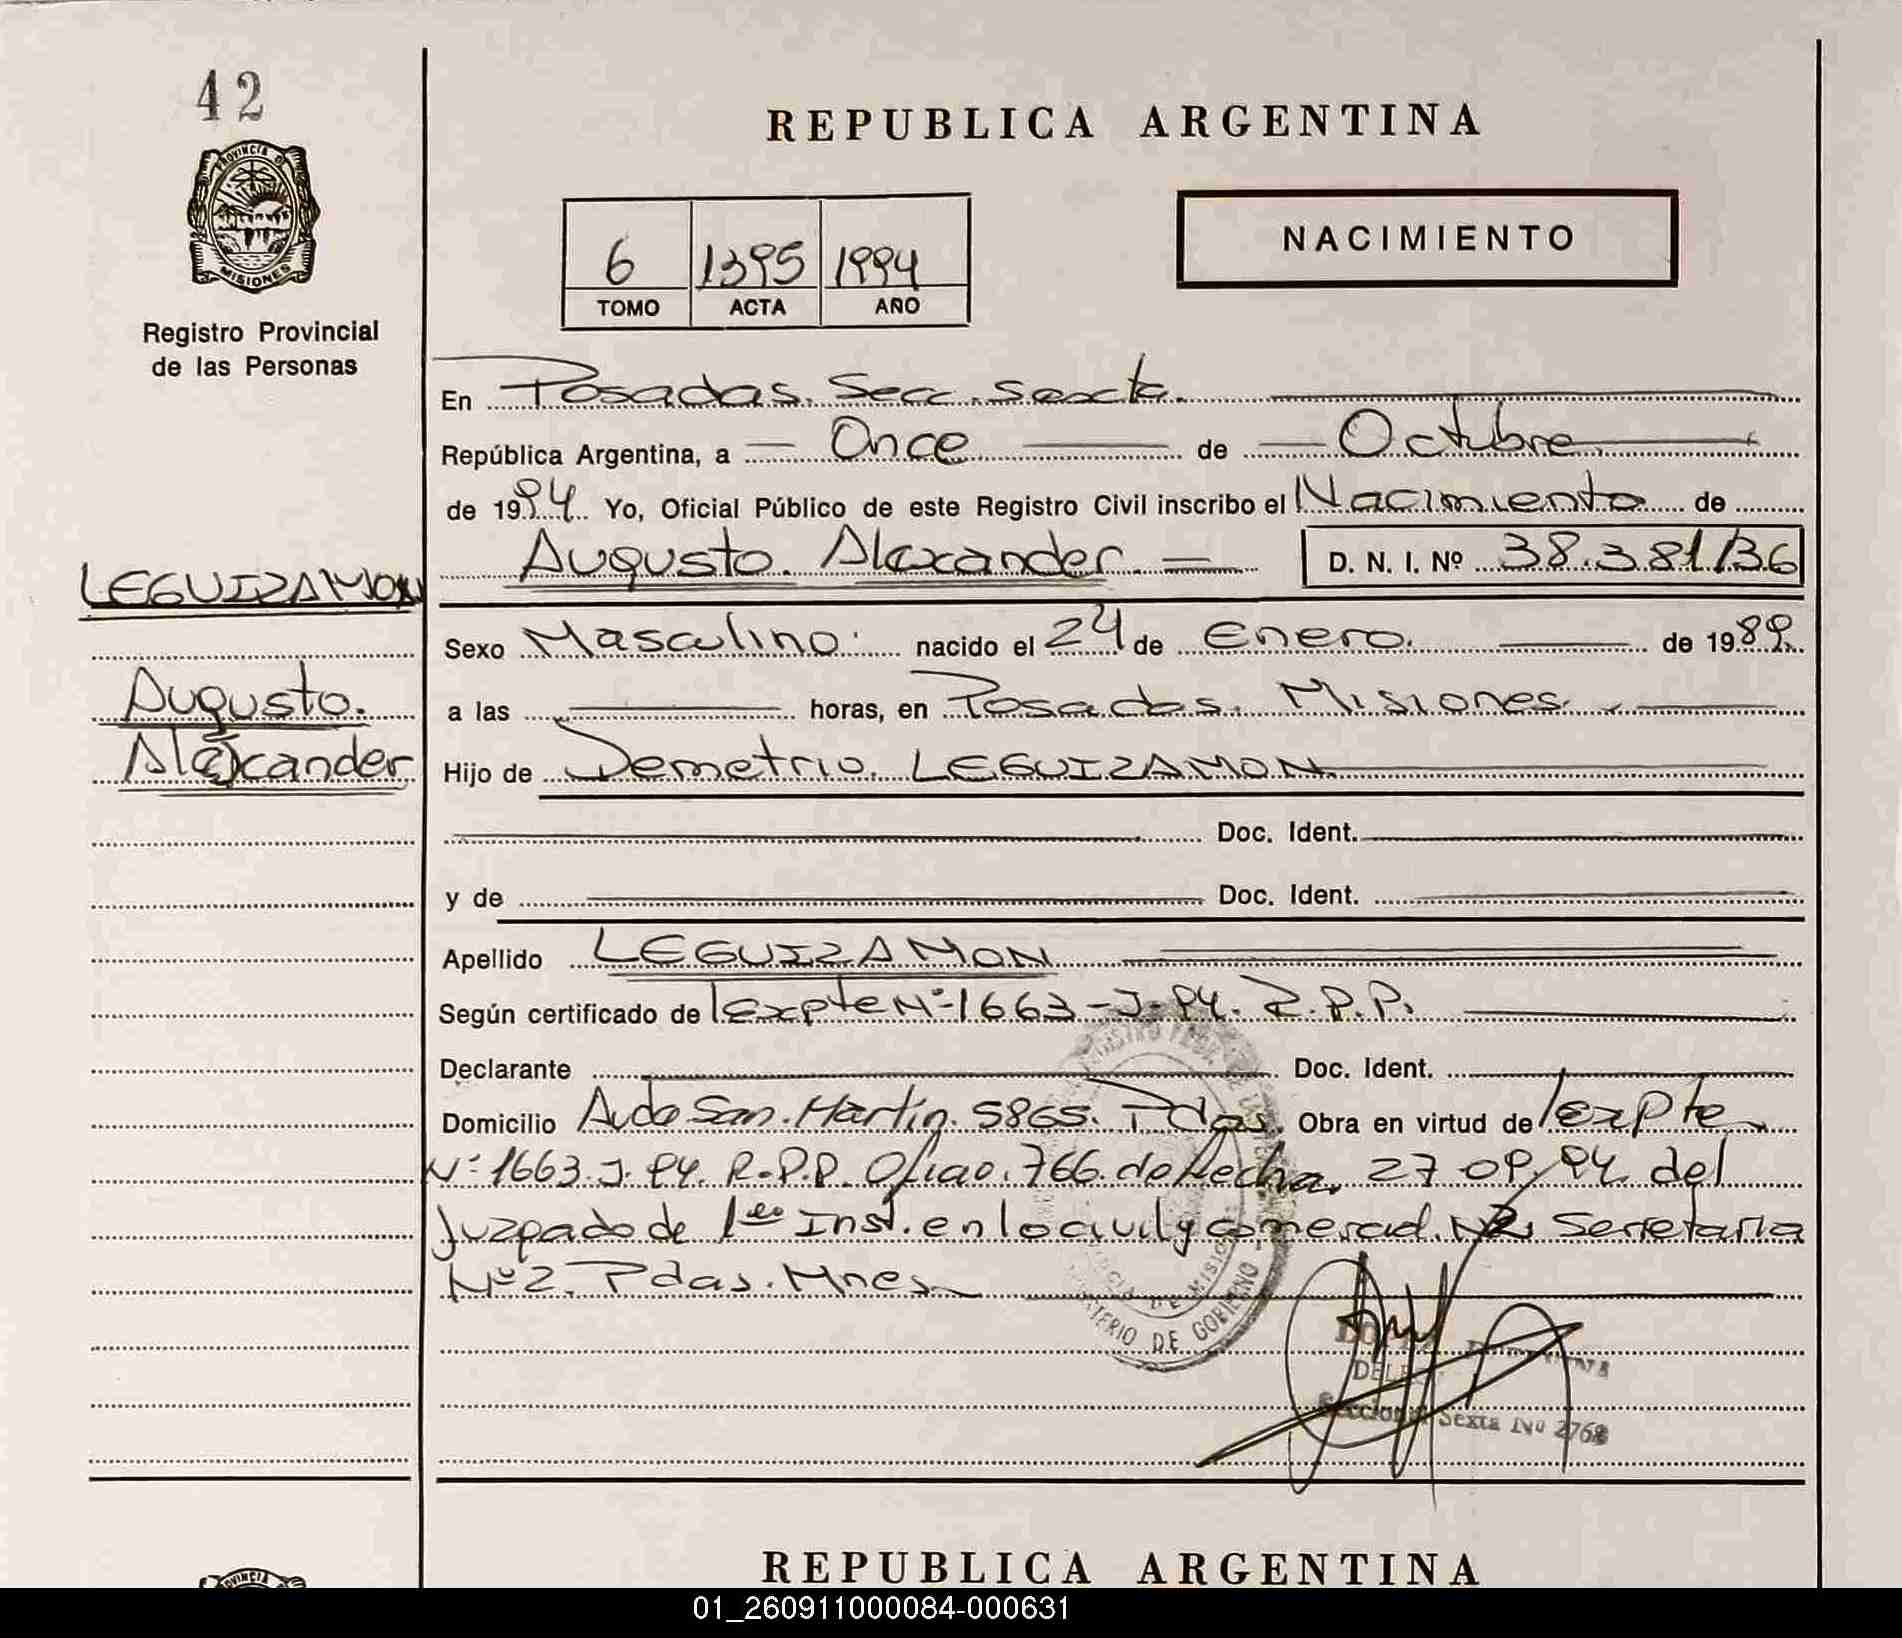 42
REPUBLICA ARGENTINA
PROVINCIA D
MISIONES
Registro Provincial
de las Personas
6 1395 1994
TOMO ACTA AÑO
NACIMIENTO
En Posadas. Secc. sexta.
República Argentina, a — Once — de — Octubre
de 1994. Yo, Oficial Público de este Registro Civil inscribo el Nacimiento de
Augusto Alexander. D. N. I. Nº 38.381136
LEGUIZAMON
Augusto.
Alexander
Sexo Masculino. nacido el 24 de Enero. de 1989.
a las horas, en Posadas. Misiones.
Hijo de Demetrio. LEGUIZAMON.
Doc. Ident.
y de Doc. Ident.
Apellido LEGUIZAMON
Según certificado de expte Nº 1663-J-94. R.P.P.
Declarante Doc. Ident.
Domicilio Avda San Martín. 5865. Pdas. Obra en virtud de expte
Nº 1663.J.94. R.P.P. Oficio. 766. de fecha 27 09/94. del
Juzgado de 1era Inst. en lo civil y comercial. Nº 2, Secretaria
Nº 2. Pdas. Mnes
MINISTERIO DE GOBIERNO
Seccional Sexta Nº 2768
REPUBLICA ARGENTINA
01_260911000084-000631